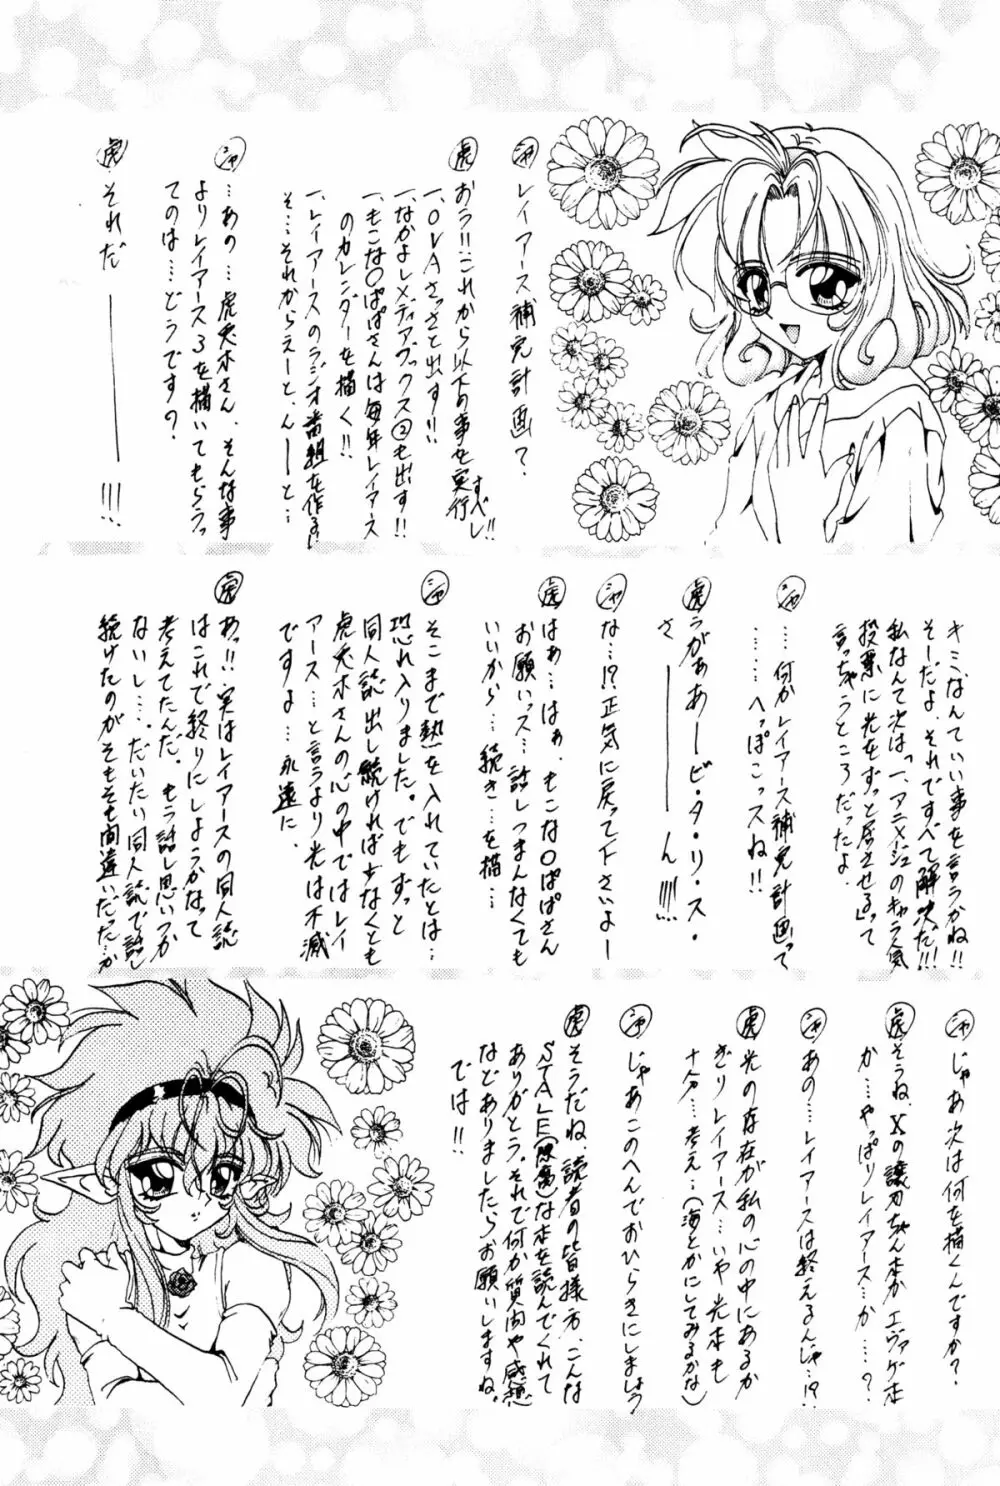 シャ レイアース補完計画？
虎 おう!!これから以下の事を実行すべし!!
一、OVAさっさと出す!!
一、なかよしメディアブックス②も出す!!
一、もこな〇ぱぱさんは毎年レイアース
のカレンダーを描く!!
一、レイアースのラジオ番組を作る!!
そ…それからえーと、んーーと…
シャ …あの…虎兎木さん、そんな事
よりレイアース3を描いてもらうっ
てのは…どうですの？
虎 それだ――――!!!!
キミなんていい事を言うかね!!
そーだよ、それですべて解決だ!!!
私なんて次は「一、アニメージュのキャラ人気
投票に光をずっと居させる」って
言っちゃうところだったよ。
シャ ……何かレイアース補完計画って
………へっぽこっスね!!
虎 うがああーービ・タ・リ・ス・
さ――――ん!!!!!
シャ な…!?正気に戻って下さいよー
虎 はぁ…はぁ、もこな〇ぱぱさん
お願いっス…話しつまんなくても
いいから…続き…を描…
シャ そこまで熱を入れていたとは…
恐れ入りました。でもずっと
同人誌出し続ければ少なくとも
虎兎木さんの心の中ではレイ
アース…と言うより光は不滅
ですよ…永遠に。
虎 あっ!!実はレイアースの同人誌
はこれで終りにしようかなって
考えてたんだ。もう話し思いつか
ないし…。だいたい同人誌で話し
続けたのがそもそも間違いだった…か
シャ じゃあ次は何を描くんですか？
虎 そうね、Xの護刃ちゃん本かエヴァゲ本
か……やっぱりレイアース…か…？
シャ あの…レイアースは終えるんじゃ…!?
虎 光の存在が私の心の中にあるか
ぎりレイアース…いや光本も
十分…考え…（海とかにしてみるかな）
シャ じゃあこのへんでおひらきにしましょう
虎 そうだね、読者の皆様方、こんな
STALE(陳腐)な本を読んでくれて
ありがとう。それで何か質問や感想
などありましたらお願いしますね。
では!!